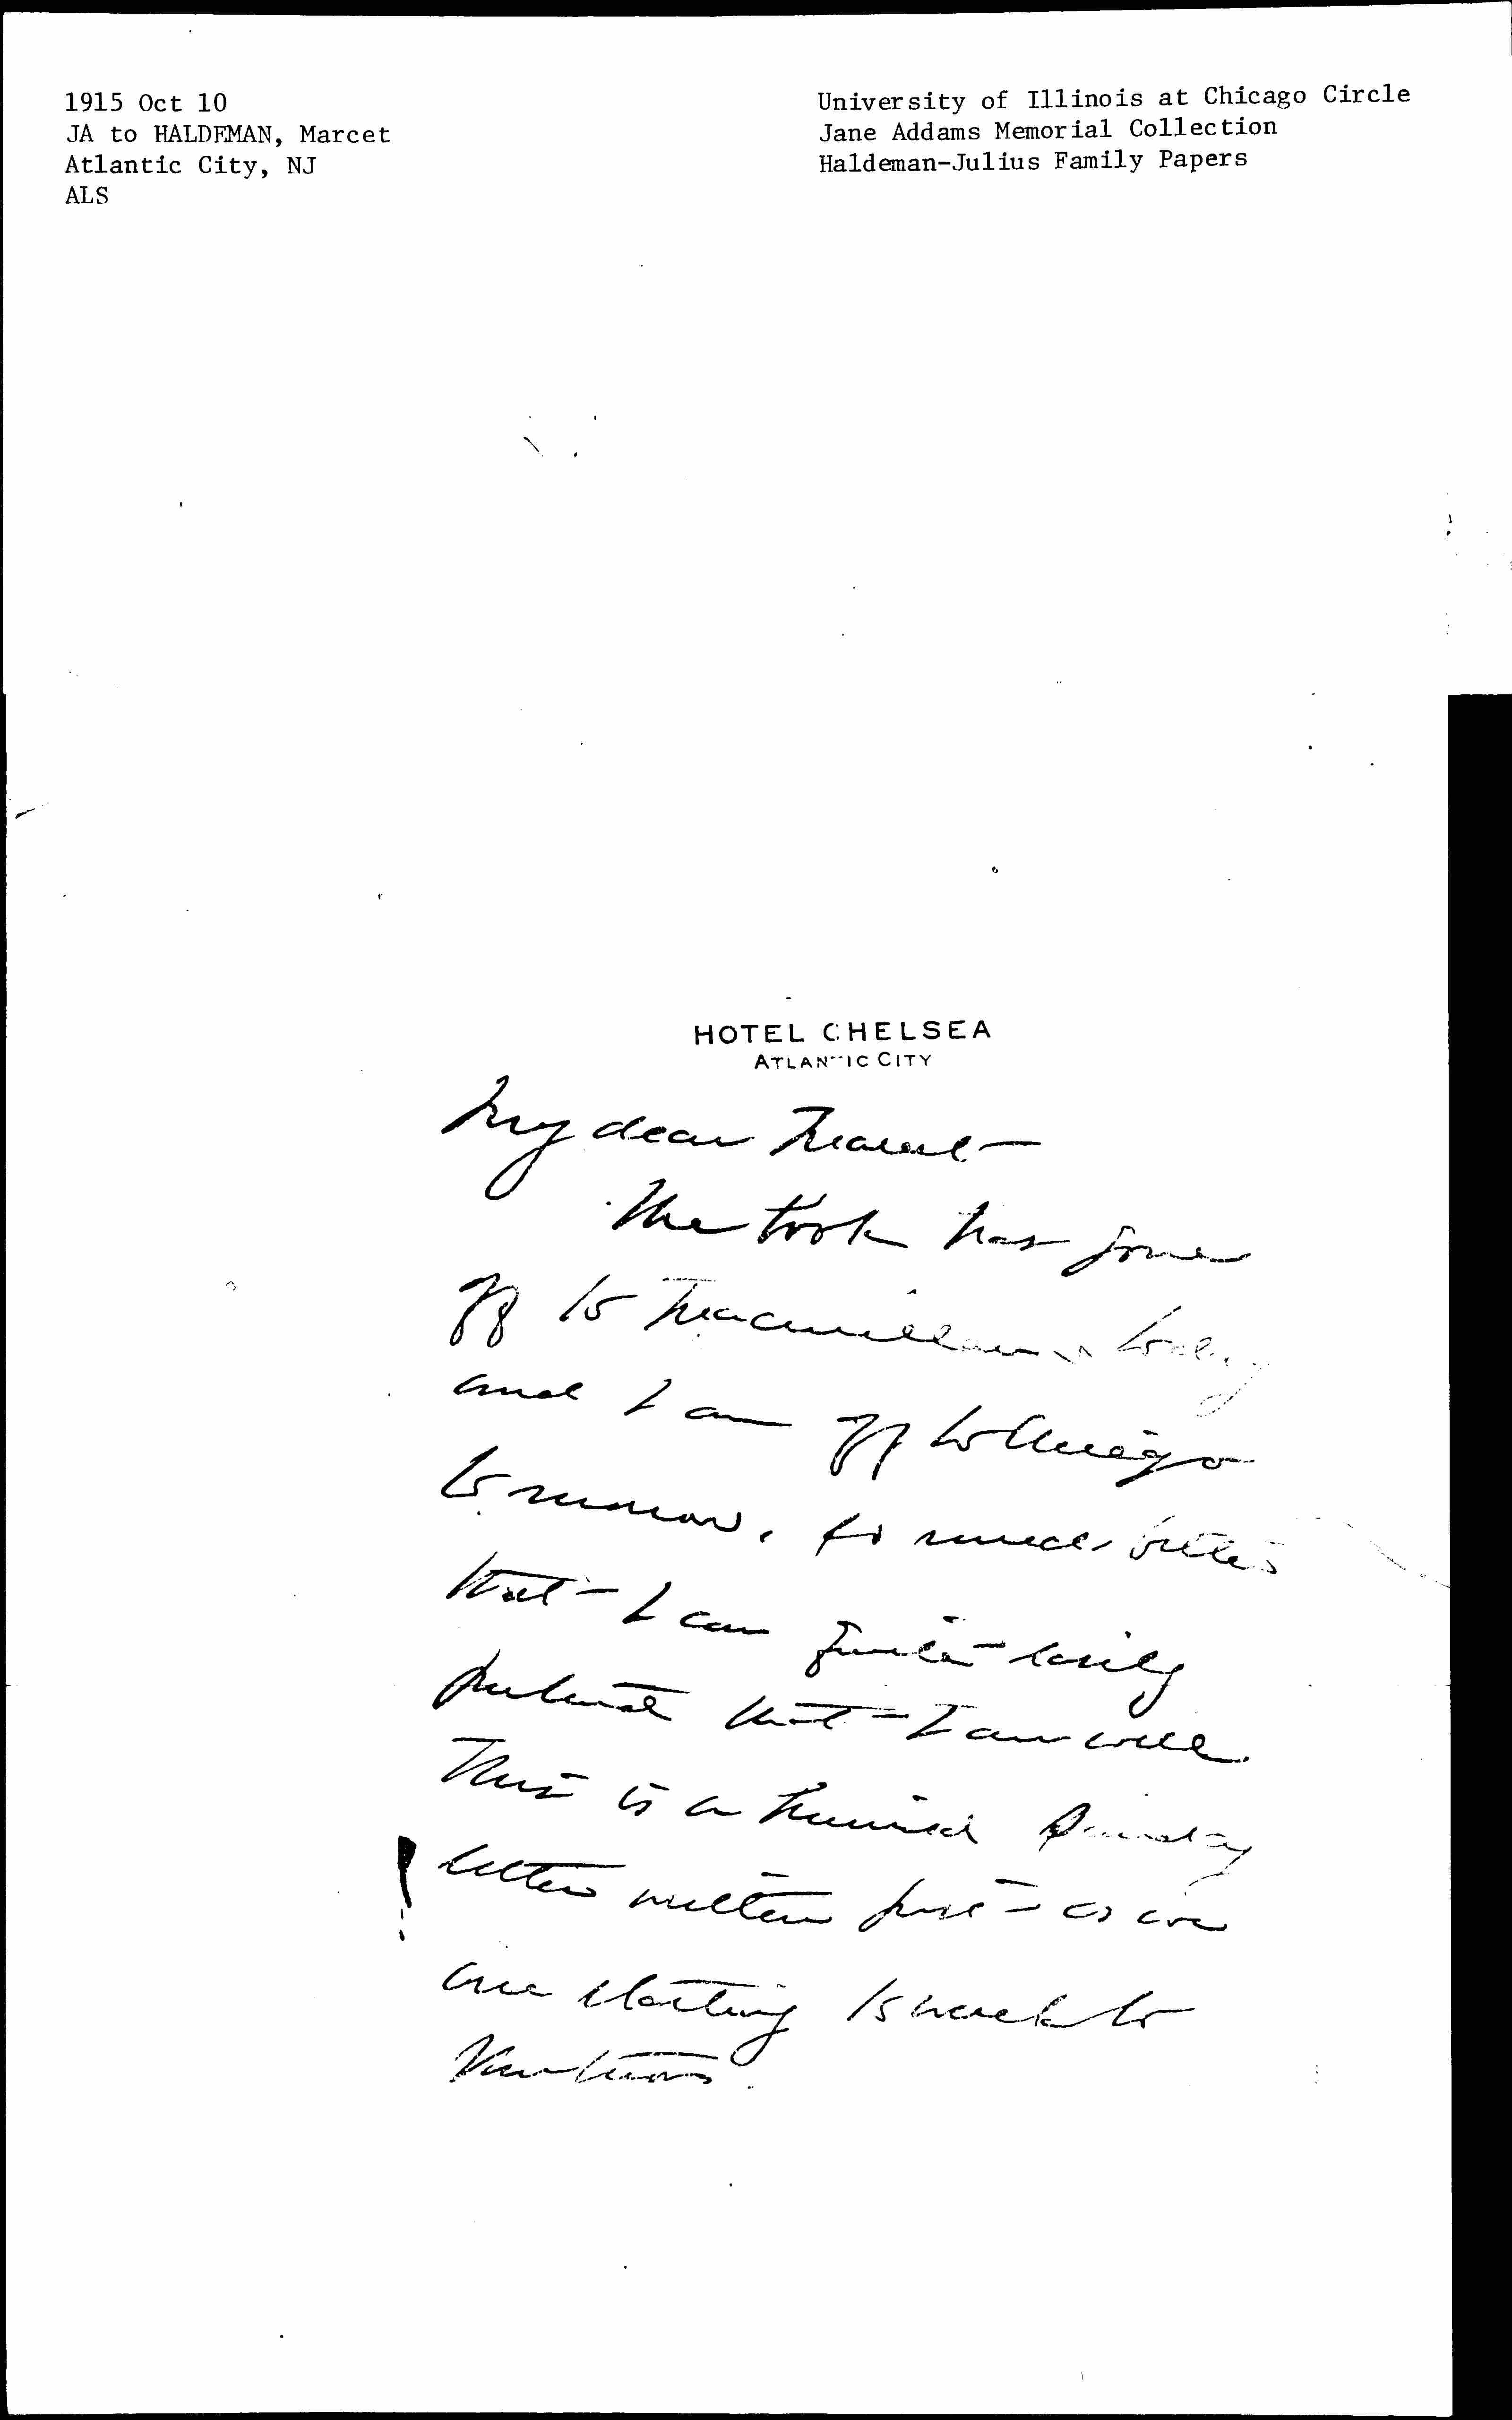 1915 Oct 10
JA to HALDEMAN, Marcet
Atlantic City, NJ
ALS
University of Illinois at Chicago Circle
Jane Addams Memorial Collection
Haldeman-Julius Family Papers
HOTEL CHELSEA
ATLANTIC CITY
My dear Marcet —
The book has gone
off to Macmillan's today
and I am off to Chicago
tomorrow, so much better
that I can quite easily
pretend that I am well.
This is a hurried Sunday
letter written just as we
are starting